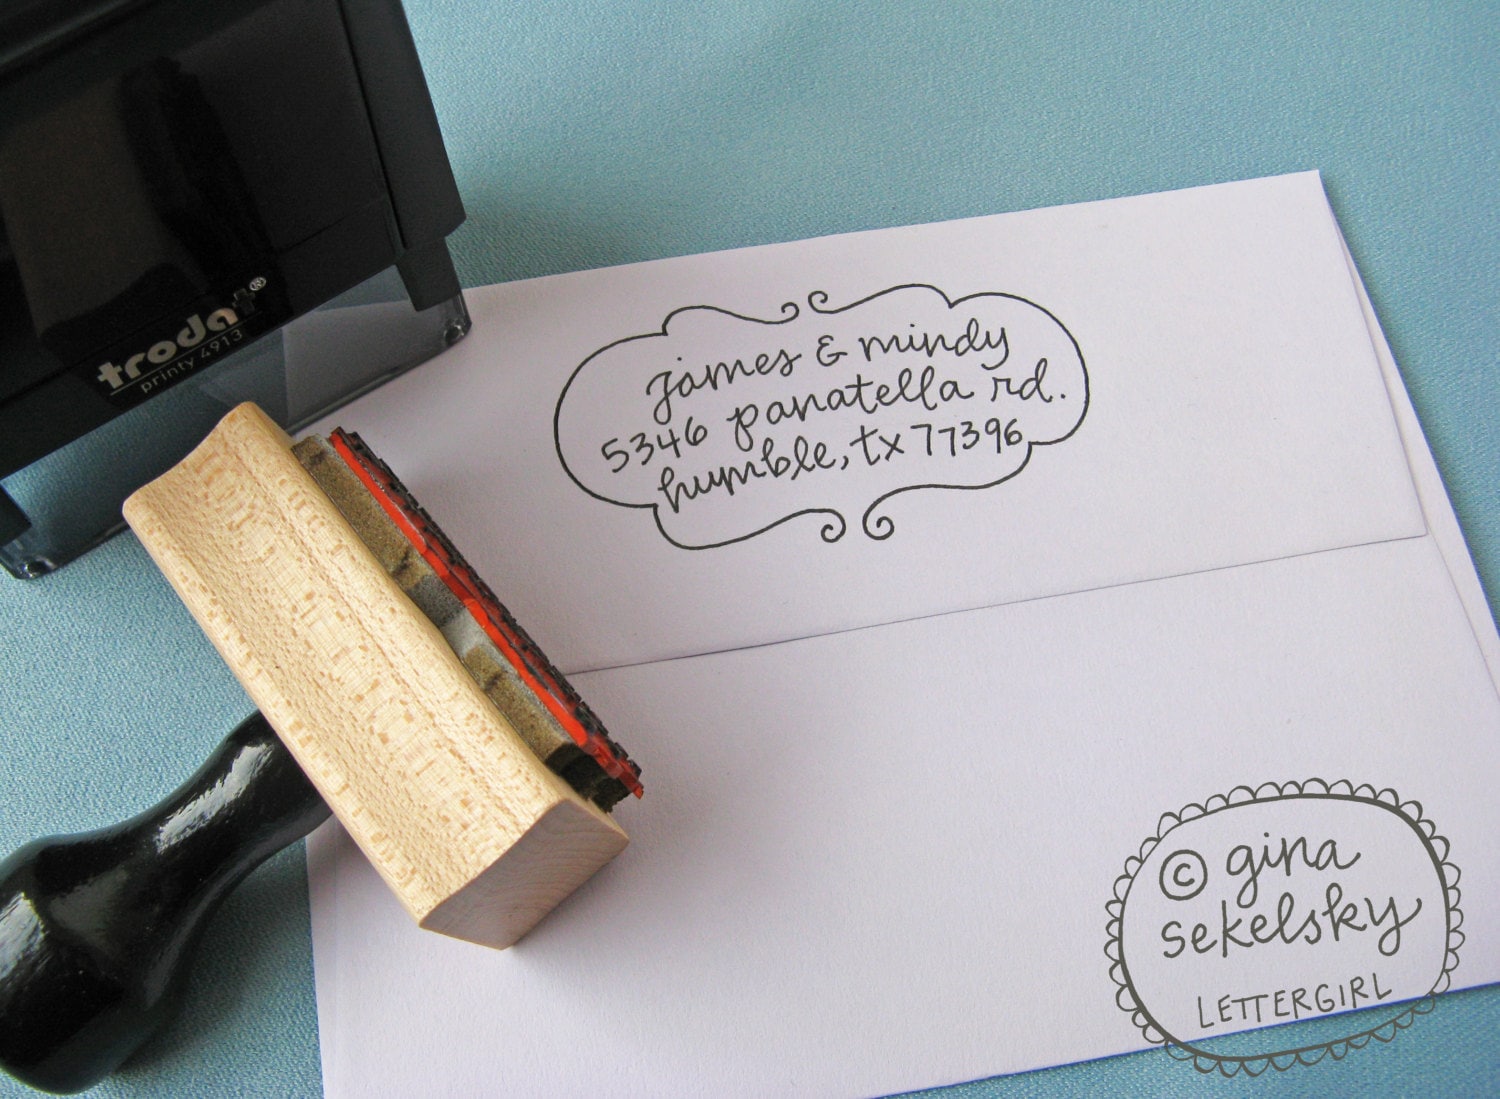 trodat®
printy 4913
james & mindy
5346 panatella rd.
humble, tx 77396
© gina
sekelsky
LETTERGIRL